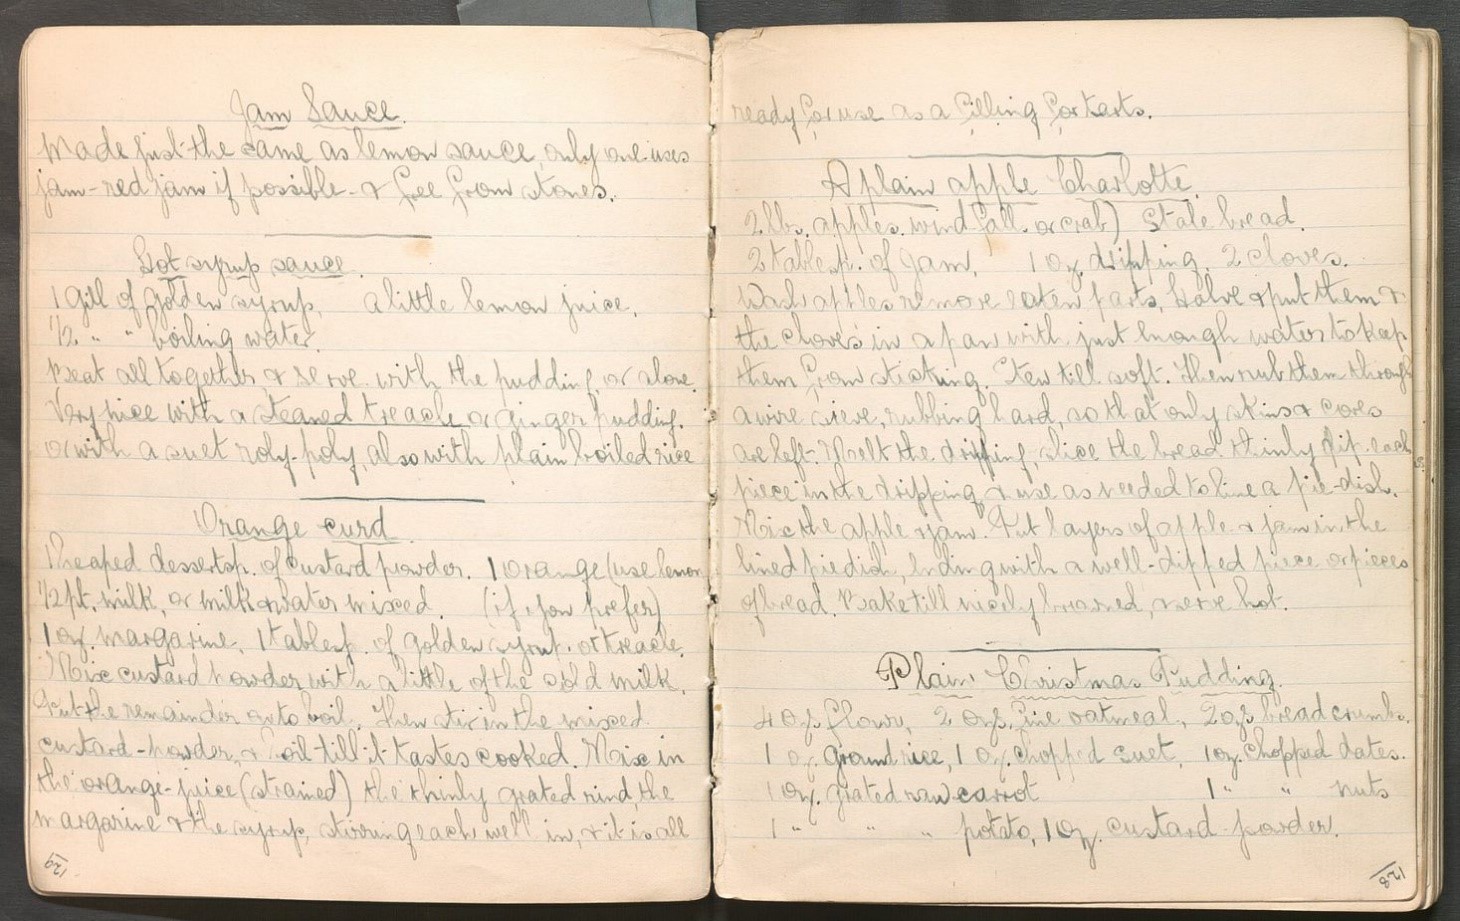 Jam Sauce.
Made just the same as lemon sauce, only one uses
jam - red jam if possible - & free from stones.
Hot syrup sauce.
1 gill of golden syrup, a little lemon juice,
1/2 " " boiling water.
Beat all together, & serve with the pudding, or alone.
Very nice with a steamed treacle or ginger pudding,
or with a suet roly-poly, also with plain boiled rice
Orange curd.
1 heaped dessertsp. of custard powder. 1 orange (use lemon
1/2 pt. milk, or milk & water mixed. (if you prefer)
1 oz. margarine, 1 tablesp. of golden syrup or treacle.
Mix custard powder with a little of the cold milk,
Put the remainder on to boil. Then stir in the mixed
custard-powder, & boil till it tastes cooked. Mix in
the orange-juice (strained) the thinly grated rind, the
margarine & the syrup, stirring each well in, & it is all
129
ready for use as a filling for tarts.
A plain apple Charlotte.
2 lbs. apples. wind-falls or crab) Stale bread.
2 tablesp. of jam, 1 oz. dripping. 2 cloves.
Wash apples remove eaten parts, halve & put them &
the cloves in a pan with just enough water to keep
them from sticking. Stew till soft. Then rub them through
a wire sieve, rubbing hard, so that only skins & cores
are left. Melt the dripping, slice the bread thinly, dip each
piece in the dripping & use as needed to line a pie-dish.
Mix the apple & jam. Put layers of apple & jam in the
lined piedish, ending with a well-dipped piece or pieces
of bread. Bake till nicely browned, & serve hot.
Plain Christmas Pudding.
4 ozs. flour, 2 ozs. fine oatmeal, 2 ozs bread crumbs.
1 oz. ground rice, 1 oz. chopped suet, 1 oz. chopped dates.
1 oz. grated raw carrot 1 " " nuts
1 " " " potato, 1 oz. custard-powder.
128